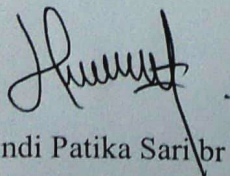 ndi Patika Sari br